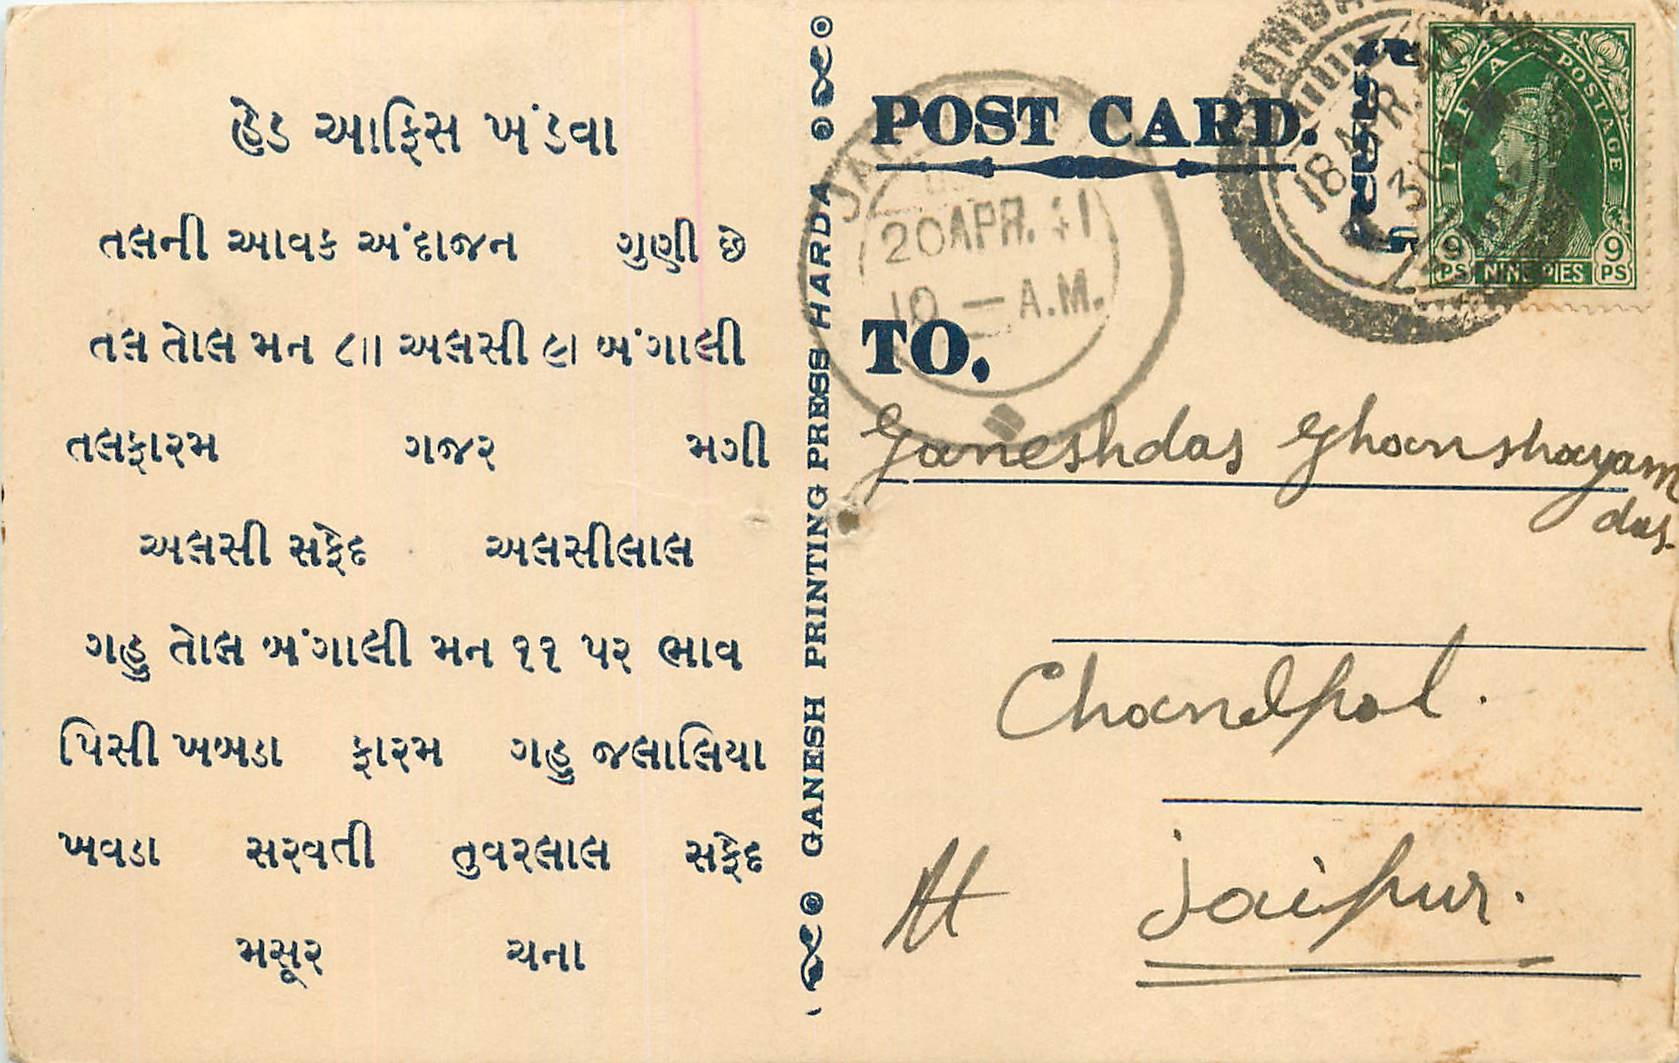 હેડ આફિસ ખંડવા
તલની આવક અંદાજન ગુણી છે
તલ તોલ મન ૮ાા અલસી ૯ા બંગાલી
તલફારમ ગજર મગી
અલસી સફેદ અલસીલાલ
ગહુ તોલ બંગાલી મન ૧૧ પર ભાવ
પિસી ખબડા ફારમ ગહુ જલાલિયા
ખવડા સરવતી તુવરલાલ સફેદ
મસૂર ચના
GANESH PRINTING PRESS HARDA
POST CARD.
TO,
Ganeshdas Ghanshayam
das.
Chandpol.
At Jaipur.
20 APR. 41
10 — A.M.
18 APR.
INDIA POSTAGE
9 PS NINE PIES 9 PS